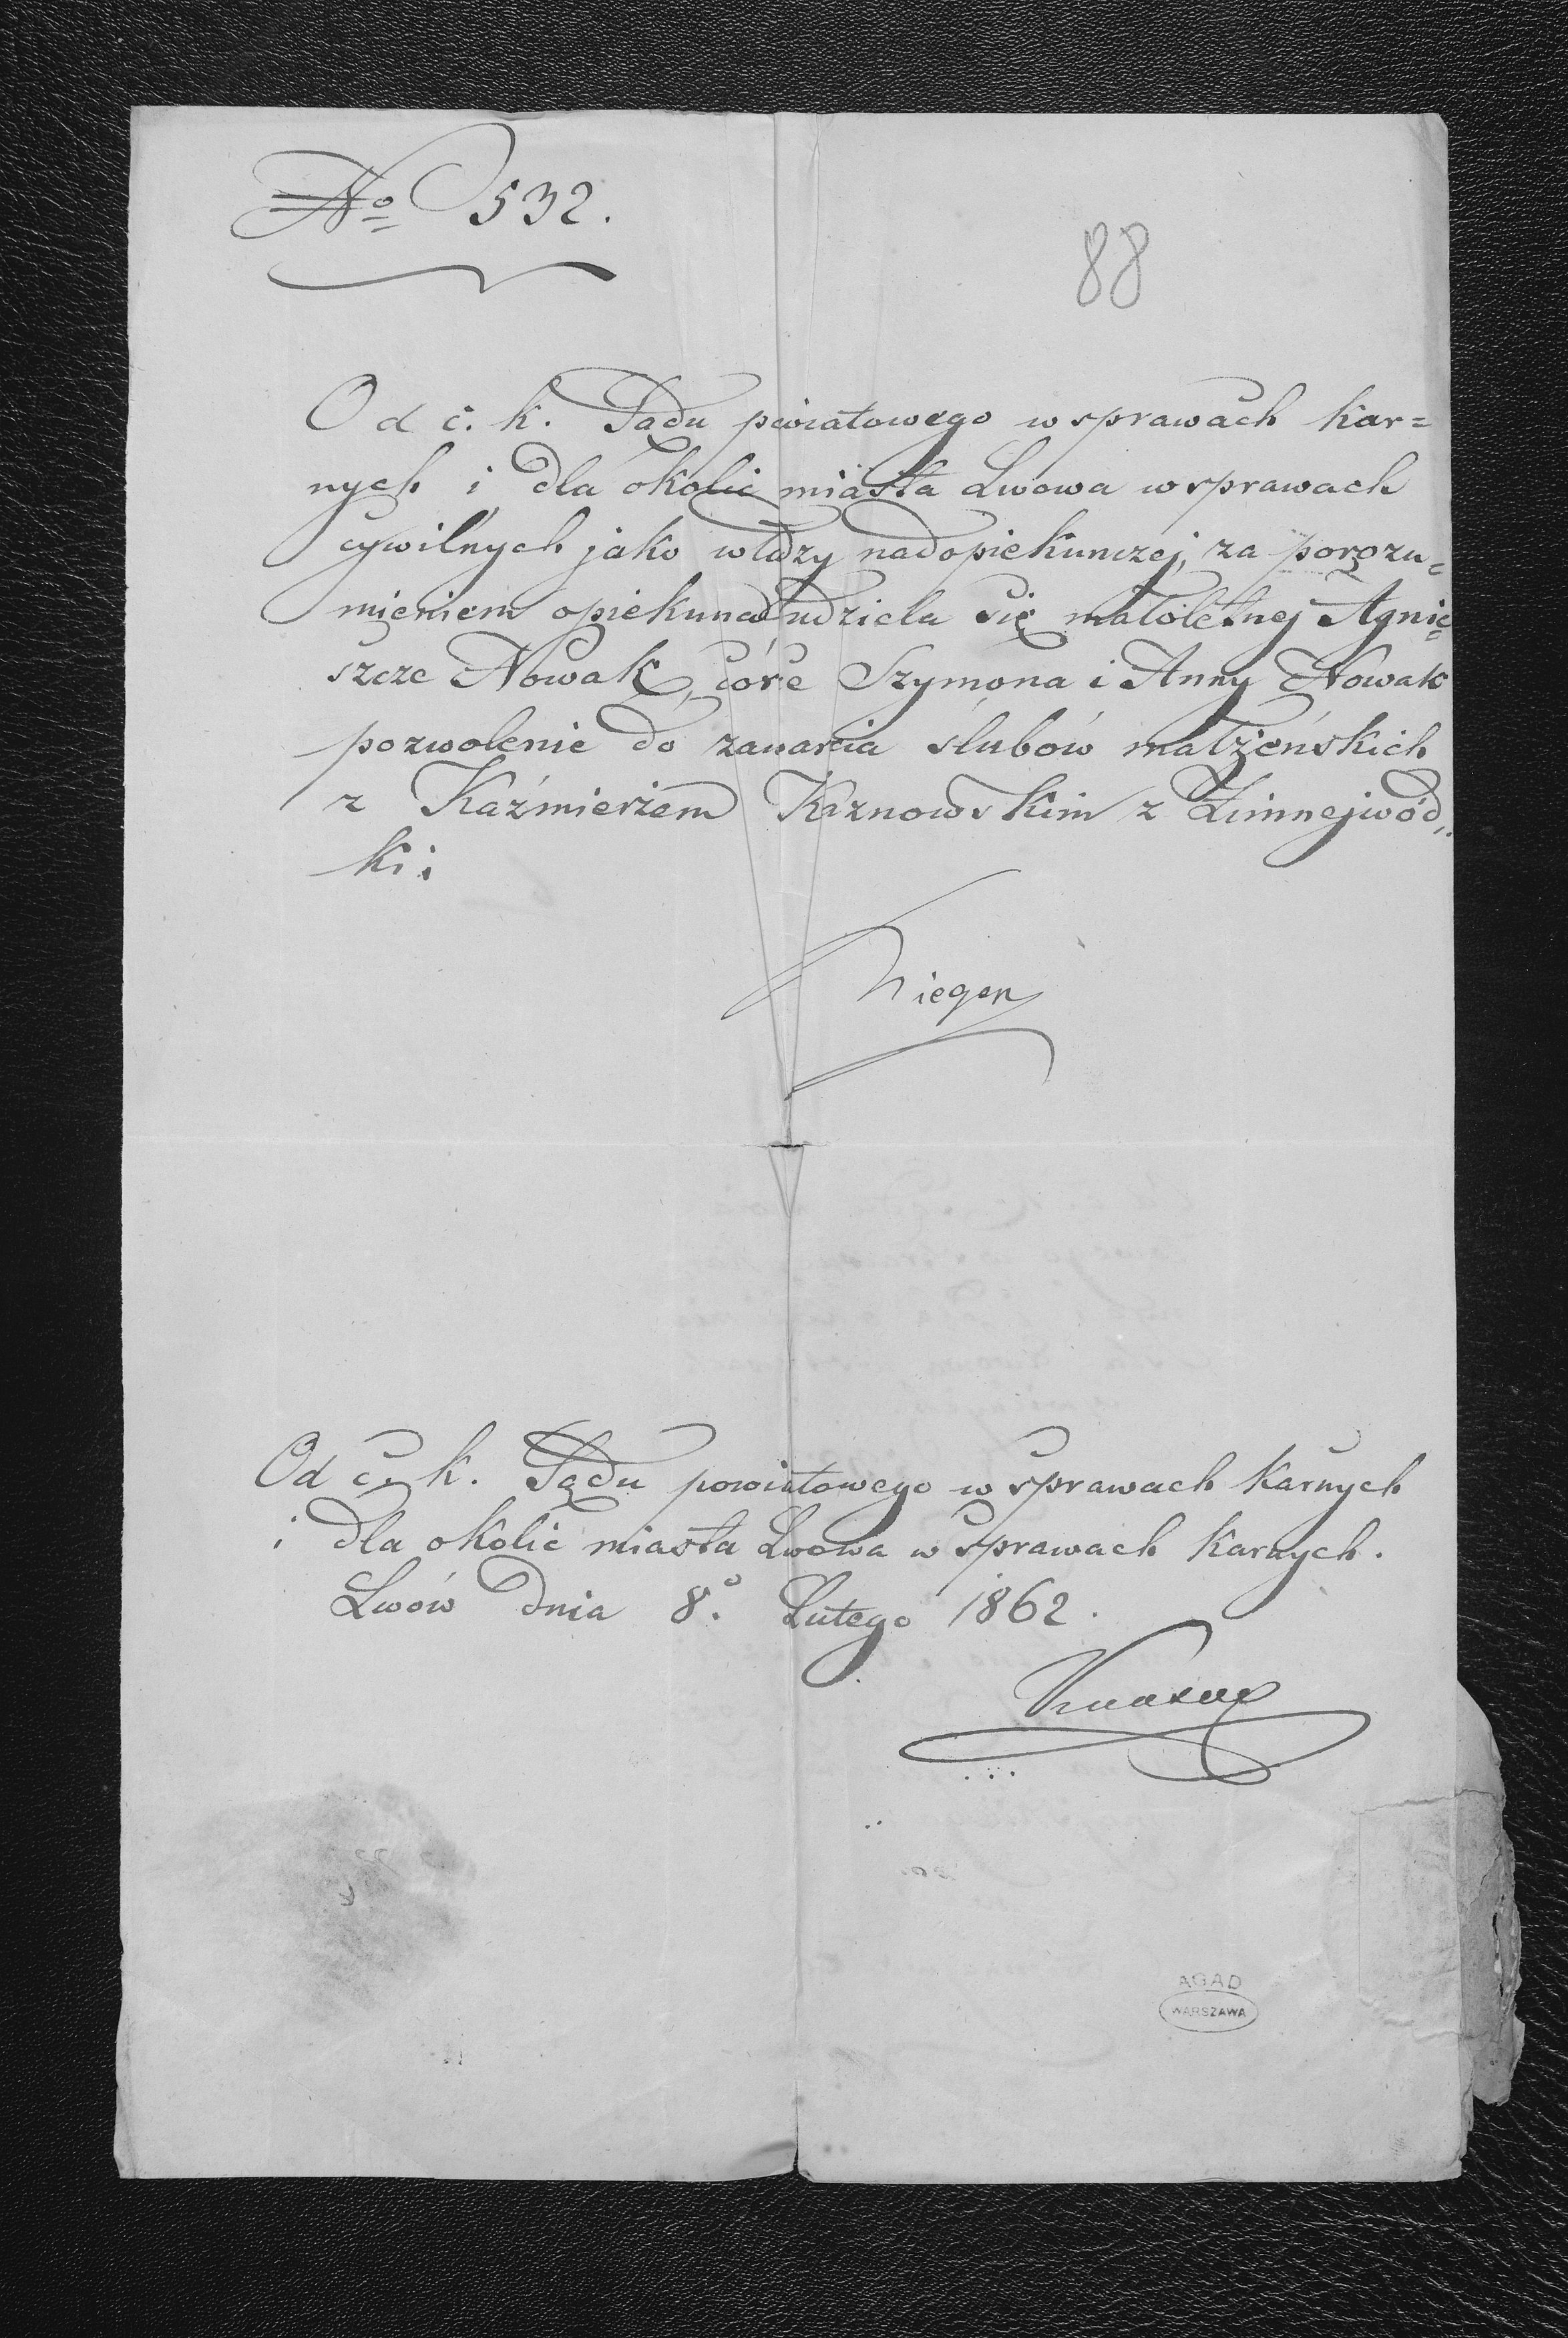 No 532.
88
Od c. k. Sądu powiatowego w sprawach kar=
nych i dla okolic miasta Lwowa w sprawach
cywilnych jako władzy nadopiekunczej, za porozu=
mieniem opiekuna udziela się małoletnej Agnie=
szcze Nowak, córce Szymona i Anny Nowak
pozwolenie do zawarcia ślubów małżeńskich
z Kaźmierzem Kaznowskim z Zimnejwód„
ki:
Od c. k. Sądu powiatowego w sprawach karnych
i dla okolic miasta Lwowa w sprawach karnych.
Lwów dnia 8o. Lutego 1862.
AGAD
WARSZAWA